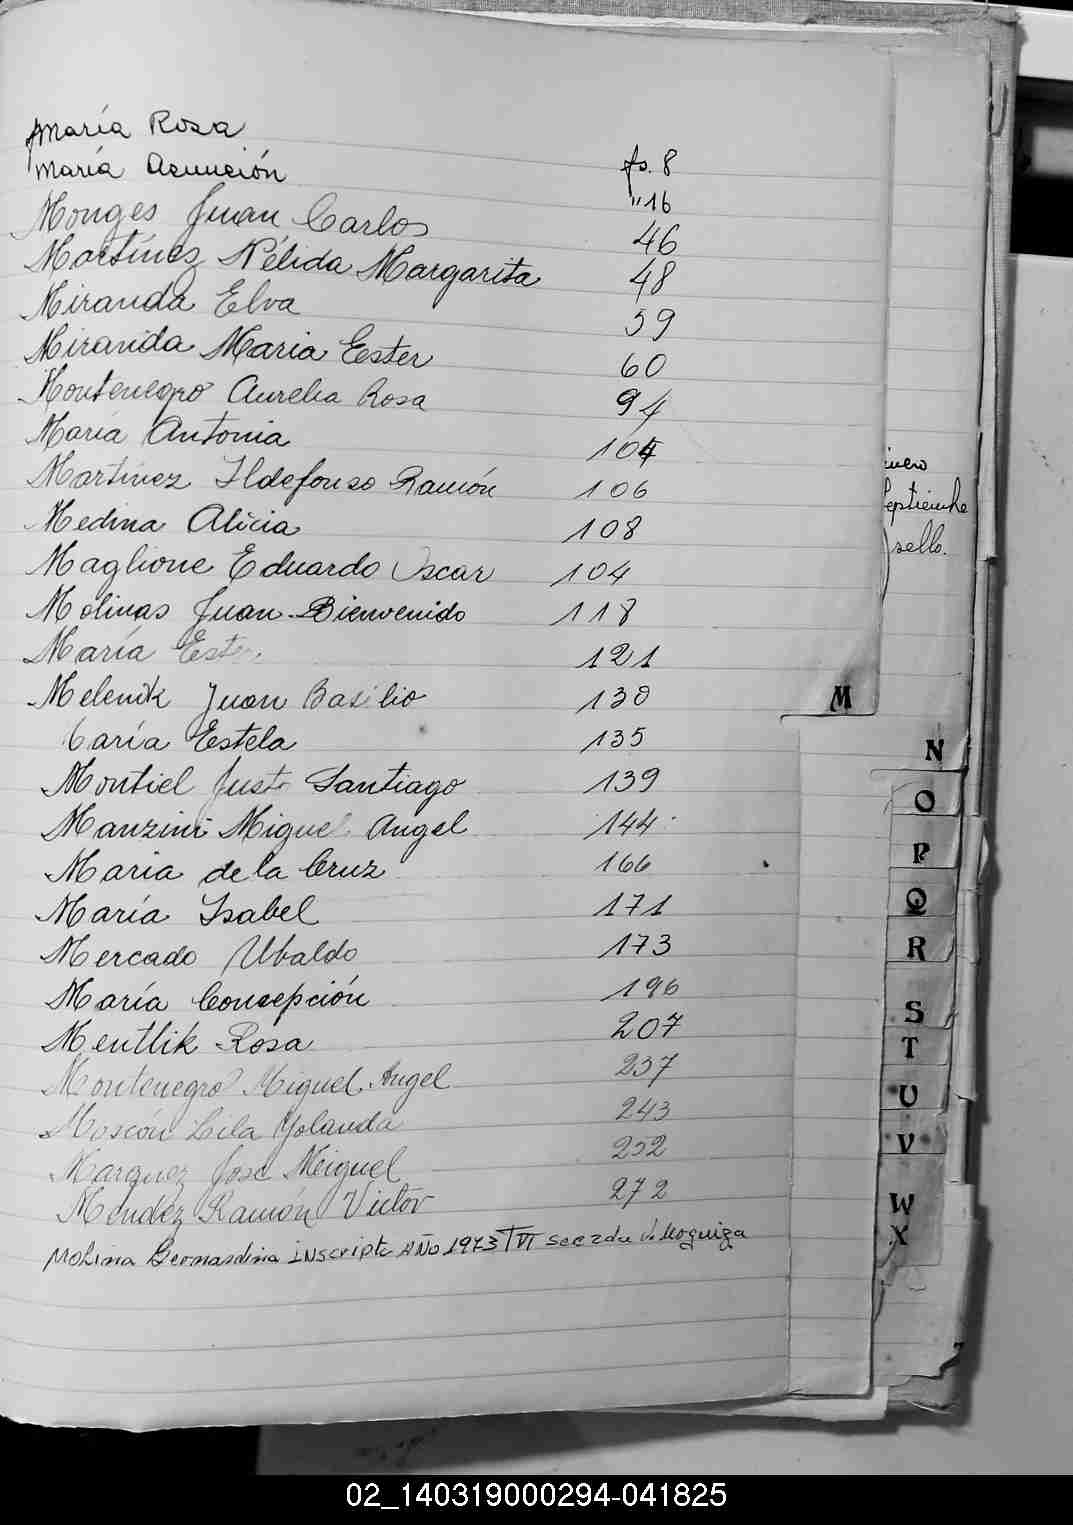 María Rosa
María Asunción fs. 8
"16
Monges Juan Carlos 46
Martínez Nélida Margarita 48
Miranda Elva 59
Miranda Maria Ester 60
Montenegro Aurelia Rosa 94
María Antonia 104
Martínez Ildefonso Ramón 106
Medina Alicia 108
Maglione Eduardo Oscar 104
Molinas Juan Bienvenido 118
María Ester 121
Melenik Juan Basilio 130
María Estela 135
Montiel Justo Santiago 139
Manzini Miguel Angel 144
Maria de la Cruz 166
María Isabel 171
Mercado Ubaldo 173
María Concepción 196
Mentlik Rosa 207
Montenegro Miguel Angel 237
Moscón Lila Yolanda 243
Marquez José Meiguel 252
Mendez Ramón Victor 272
Molina Bernardina inscripta AÑO 1973 T VI
septiembre
sello.
M
N
O
P
Q
R
S
T
U
V
W
X
02_140319000294-041825